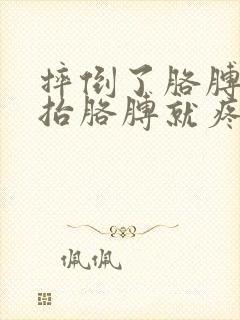 摔倒了胳膊
抬胳膊就疼
佩佩